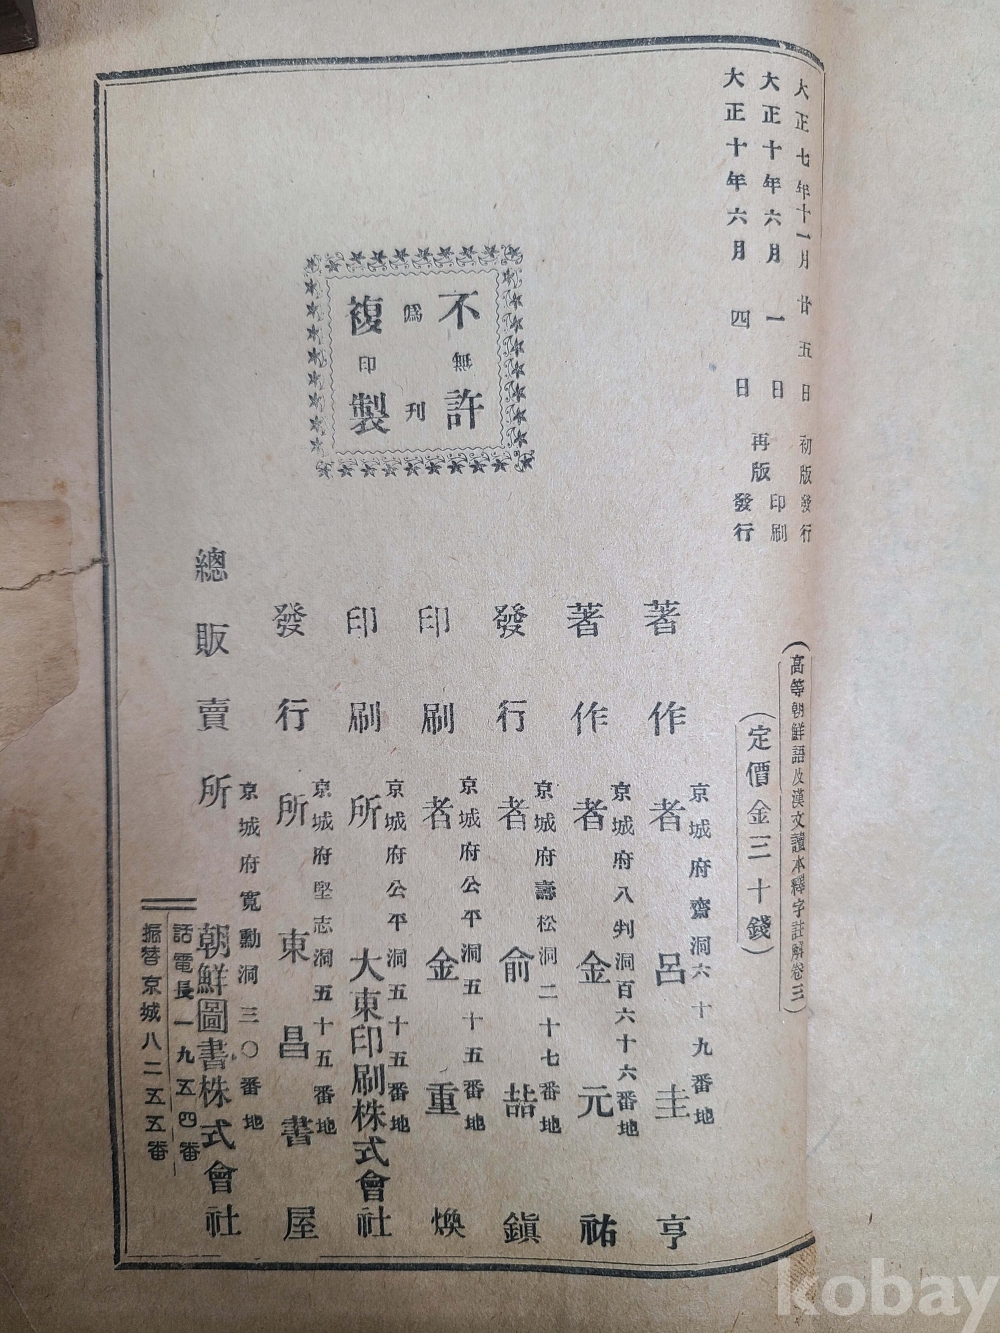 大正七年十一月廿五日初版發行
大正十年六月一日再版印刷
大正十年六月四日發行
(高等朝鮮語及漢文讀本釋字註解卷三)
(定價金三十錢)
不許
無
爲刊
複製
印
京城府齋洞六十九番地
著作者 呂圭亨
京城府八判洞百六十六番地
著作者 金元祐
京城府壽松洞二十七番地
發行者 俞喆鎭
京城府公平洞五十五番地
印刷者 金重煥
京城府公平洞五十五番地
印刷所 大東印刷株式會社
京城府堅志洞五十五番地
發行所 東昌書屋
京城府寬勳洞三〇番地
總販賣所 朝鮮圖書株式會社
話電長一九五四番
振替京城八二五五番
kobay